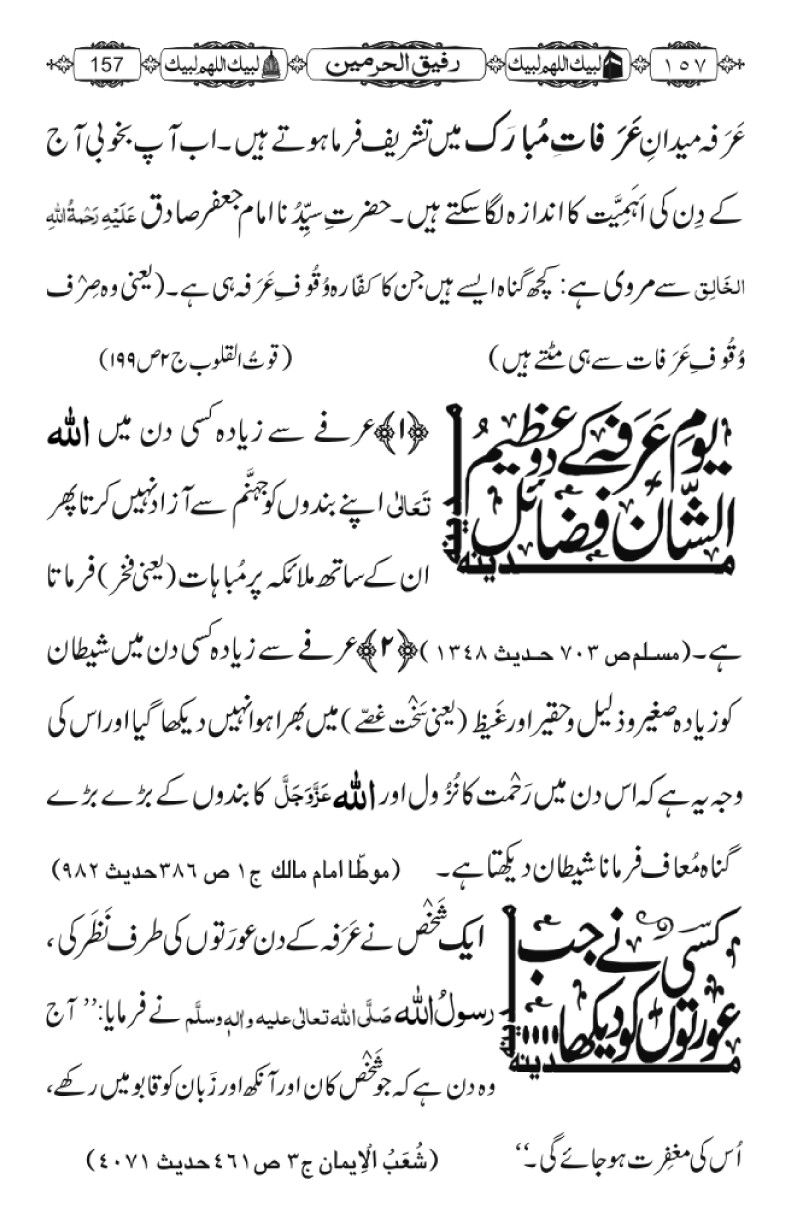 ۱۵۷ لبیك اللهم لبیك رفیق الحرمین لبیك اللهم لبیك 157
عَرَفہ میدانِ عَرَفاتِ مُبارَک میں تشریف فرما ہوتے ہیں۔ اب آپ بخوبی آج
کے دِن کی اَہَمِیَّت کا اندازہ لگا سکتے ہیں۔ حضرتِ سیِّدُنا امام جعفر صادق عَلَیْہِ رَحْمَۃُ اللہِ
الخَالِق سے مروی ہے: کچھ گناہ ایسے ہیں جن کا کفّارہ وُقُوفِ عَرَفہ ہی ہے۔ (یعنی وہ صِرْف
وُقُوفِ عَرَفات سے ہی مٹتے ہیں) (قوتُ القلوب ج۲ ص۱۹۹)
یومِ عَرَفہ کے دو عظیمُ
الشّان فضائل
مدینہ
مدینہ
﴿۱﴾ عرفے سے زیادہ کسی دن میں اللہ
تَعَالٰی اپنے بندوں کو جہنَّم سے آزاد نہیں کرتا پھر
ان کے ساتھ ملائکہ پر مُباہات (یعنی فخر) فرماتا
ہے۔ (مسلم ص ۷۰۳ حدیث ۱۳٤۸) ﴿۲﴾ عرفے سے زیادہ کسی دن میں شیطان
کو زیادہ صغیر و ذلیل و حقیر اور غَیظ (یعنی سَخْت غصّے) میں بھرا ہوا نہیں دیکھا گیا اور اس کی
وجہ یہ ہے کہ اس دن میں رَحْمت کا نُزُول اور اللہ عَزَّوَجَلَّ کا بندوں کے بڑے بڑے
گناہ مُعاف فرمانا شیطان دیکھتا ہے۔ (موطّا امام مالك ج۱ ص ۳۸٦ حدیث ۹۸۲)
کسی نے جب
عورتوں کو دیکھا.....
مدینہ
مدینہ
ایک شَخْص نے عَرَفہ کے دن عورَتوں کی طرف نَظَر کی،
رسولُ اللہ صَلَّی اللہ تعالٰی علیہ والہٖ وسلَّم نے فرمایا: ’’آج
وہ دن ہے کہ جو شَخْص کان اور آنکھ اور زَبان کو قابو میں رکھے،
اُس کی مغفِرت ہو جائے گی۔‘‘ (شُعَبُ الْاِیمان ج۳ ص٤٦۱ حدیث ٤۰۷۱)